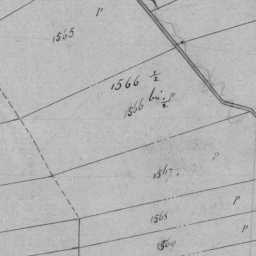 p
1565
1566 1/2
1566 bis 1/2 p
1567. p
1568 p
p